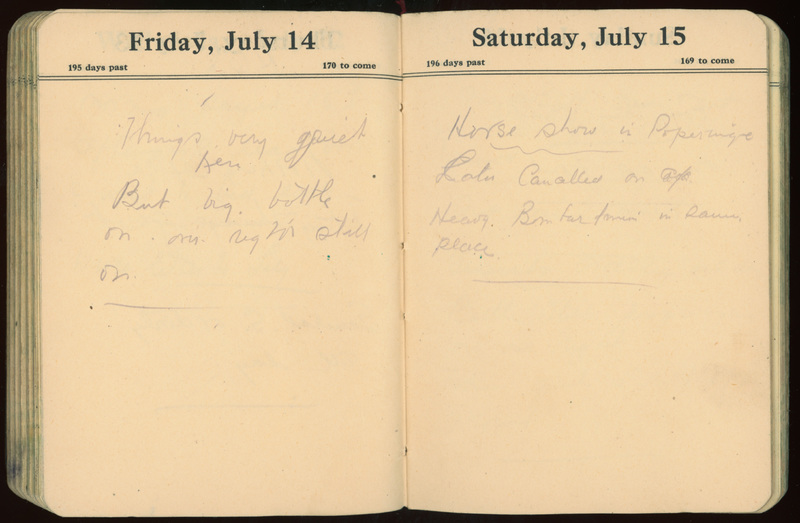 Friday, July 14
195 days past 170 to come
Things very quiet
here
But big battle
on our right still
on.
Saturday, July 15
196 days past 169 to come
Horse show in Poperinghe
Later Cancelled on
Heavy Bombardment in same
place.